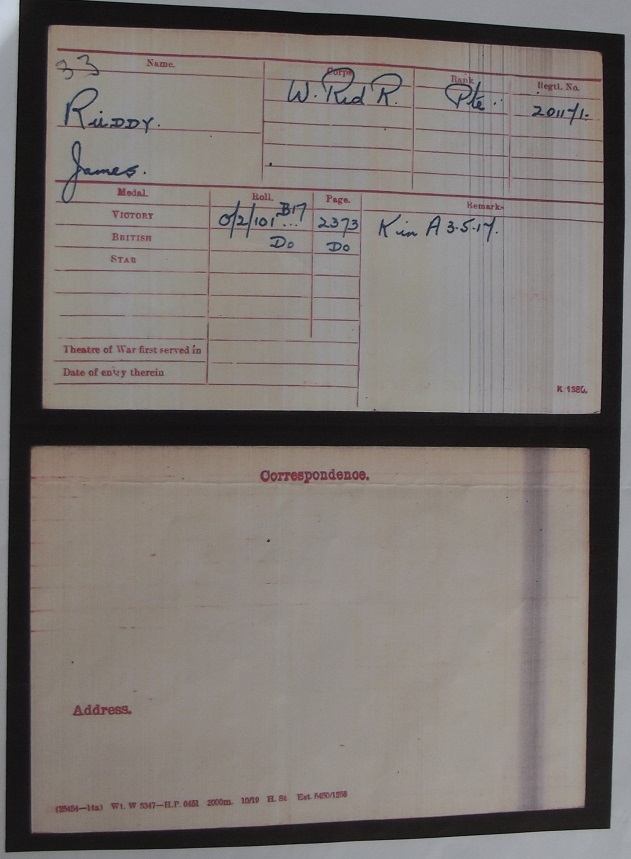 33
Name. Corps. Rank. Regtl. No.
RUDDY. W. Rid R. Pte. 201171.
James.
Medal. Roll. Page. Remarks
VICTORY O/2/101 B17 ... 2373 K in A 3.5.17.
BRITISH Do Do
STAR
Theatre of War first served in
Date of entry therein
K 1380.
Correspondence.
Address.
Wt. W 5347—H.P. 2000m. 10/19 H. St